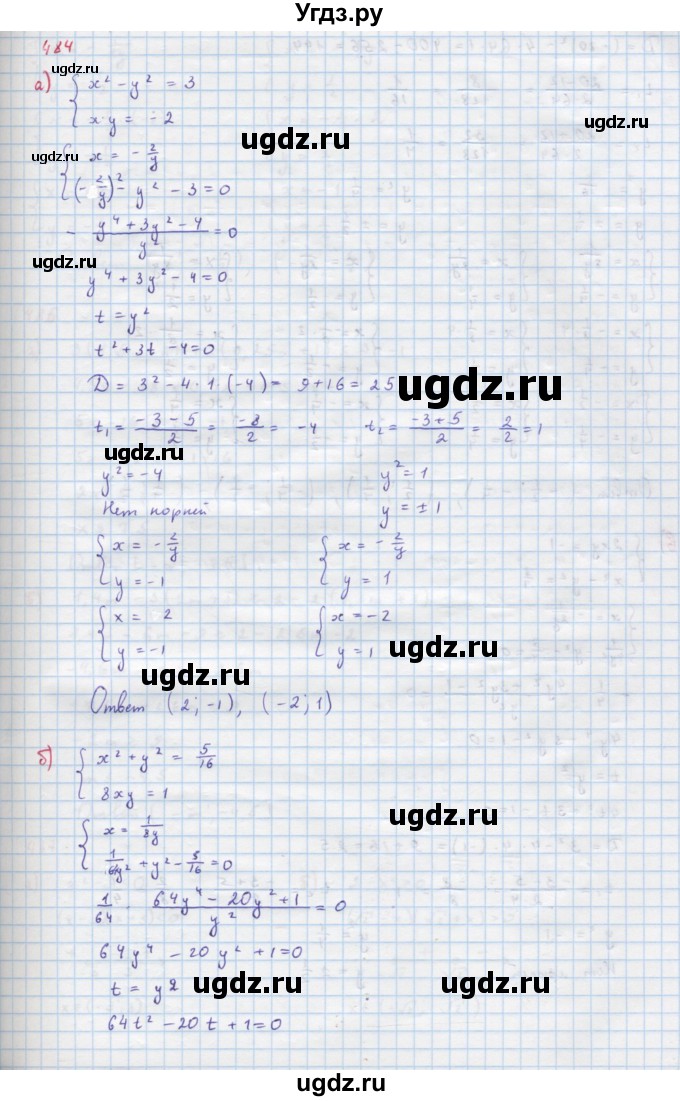 Угдз.ру
484
ugdz.ru
а) { x² - y² = 3
x y = -2
ugdz.ru
ugdz.ru
ugdz.ru
{ x = - 2/y
(- 2/y)² - y² - 3 = 0
- (y⁴ + 3y² - 4)/y² = 0
ugdz.ru
y⁴ + 3y² - 4 = 0
ugdz.ru
t = y²
t² + 3t - 4 = 0
D = 3² - 4 · 1 · (-4) = 9 + 16 = 25
ugdz.ru
t₁ = (-3 - 5)/2 = -8/2 = -4 t₂ = (-3 + 5)/2 = 2/2 = 1
ugdz.ru
y² = -4 y² = 1
Нет корней y = ± 1
{ x = - 2/y { x = - 2/y
y = -1 y = 1
{ x = 2 { x = -2
y = -1 y = 1
ugdz.ru
ugdz.ru
Ответ (2; -1), (-2; 1)
б) { x² + y² = 5/16
8xy = 1
ugdz.ru
{ x = 1/8y
1/64y² + y² - 5/16 = 0
1/64 · (64y⁴ - 20y² + 1)/y² = 0
64y⁴ - 20y² + 1 = 0
t = y2
ugdz.ru
ugdz.ru
64t² - 20t + 1 = 0
ugdz.ru